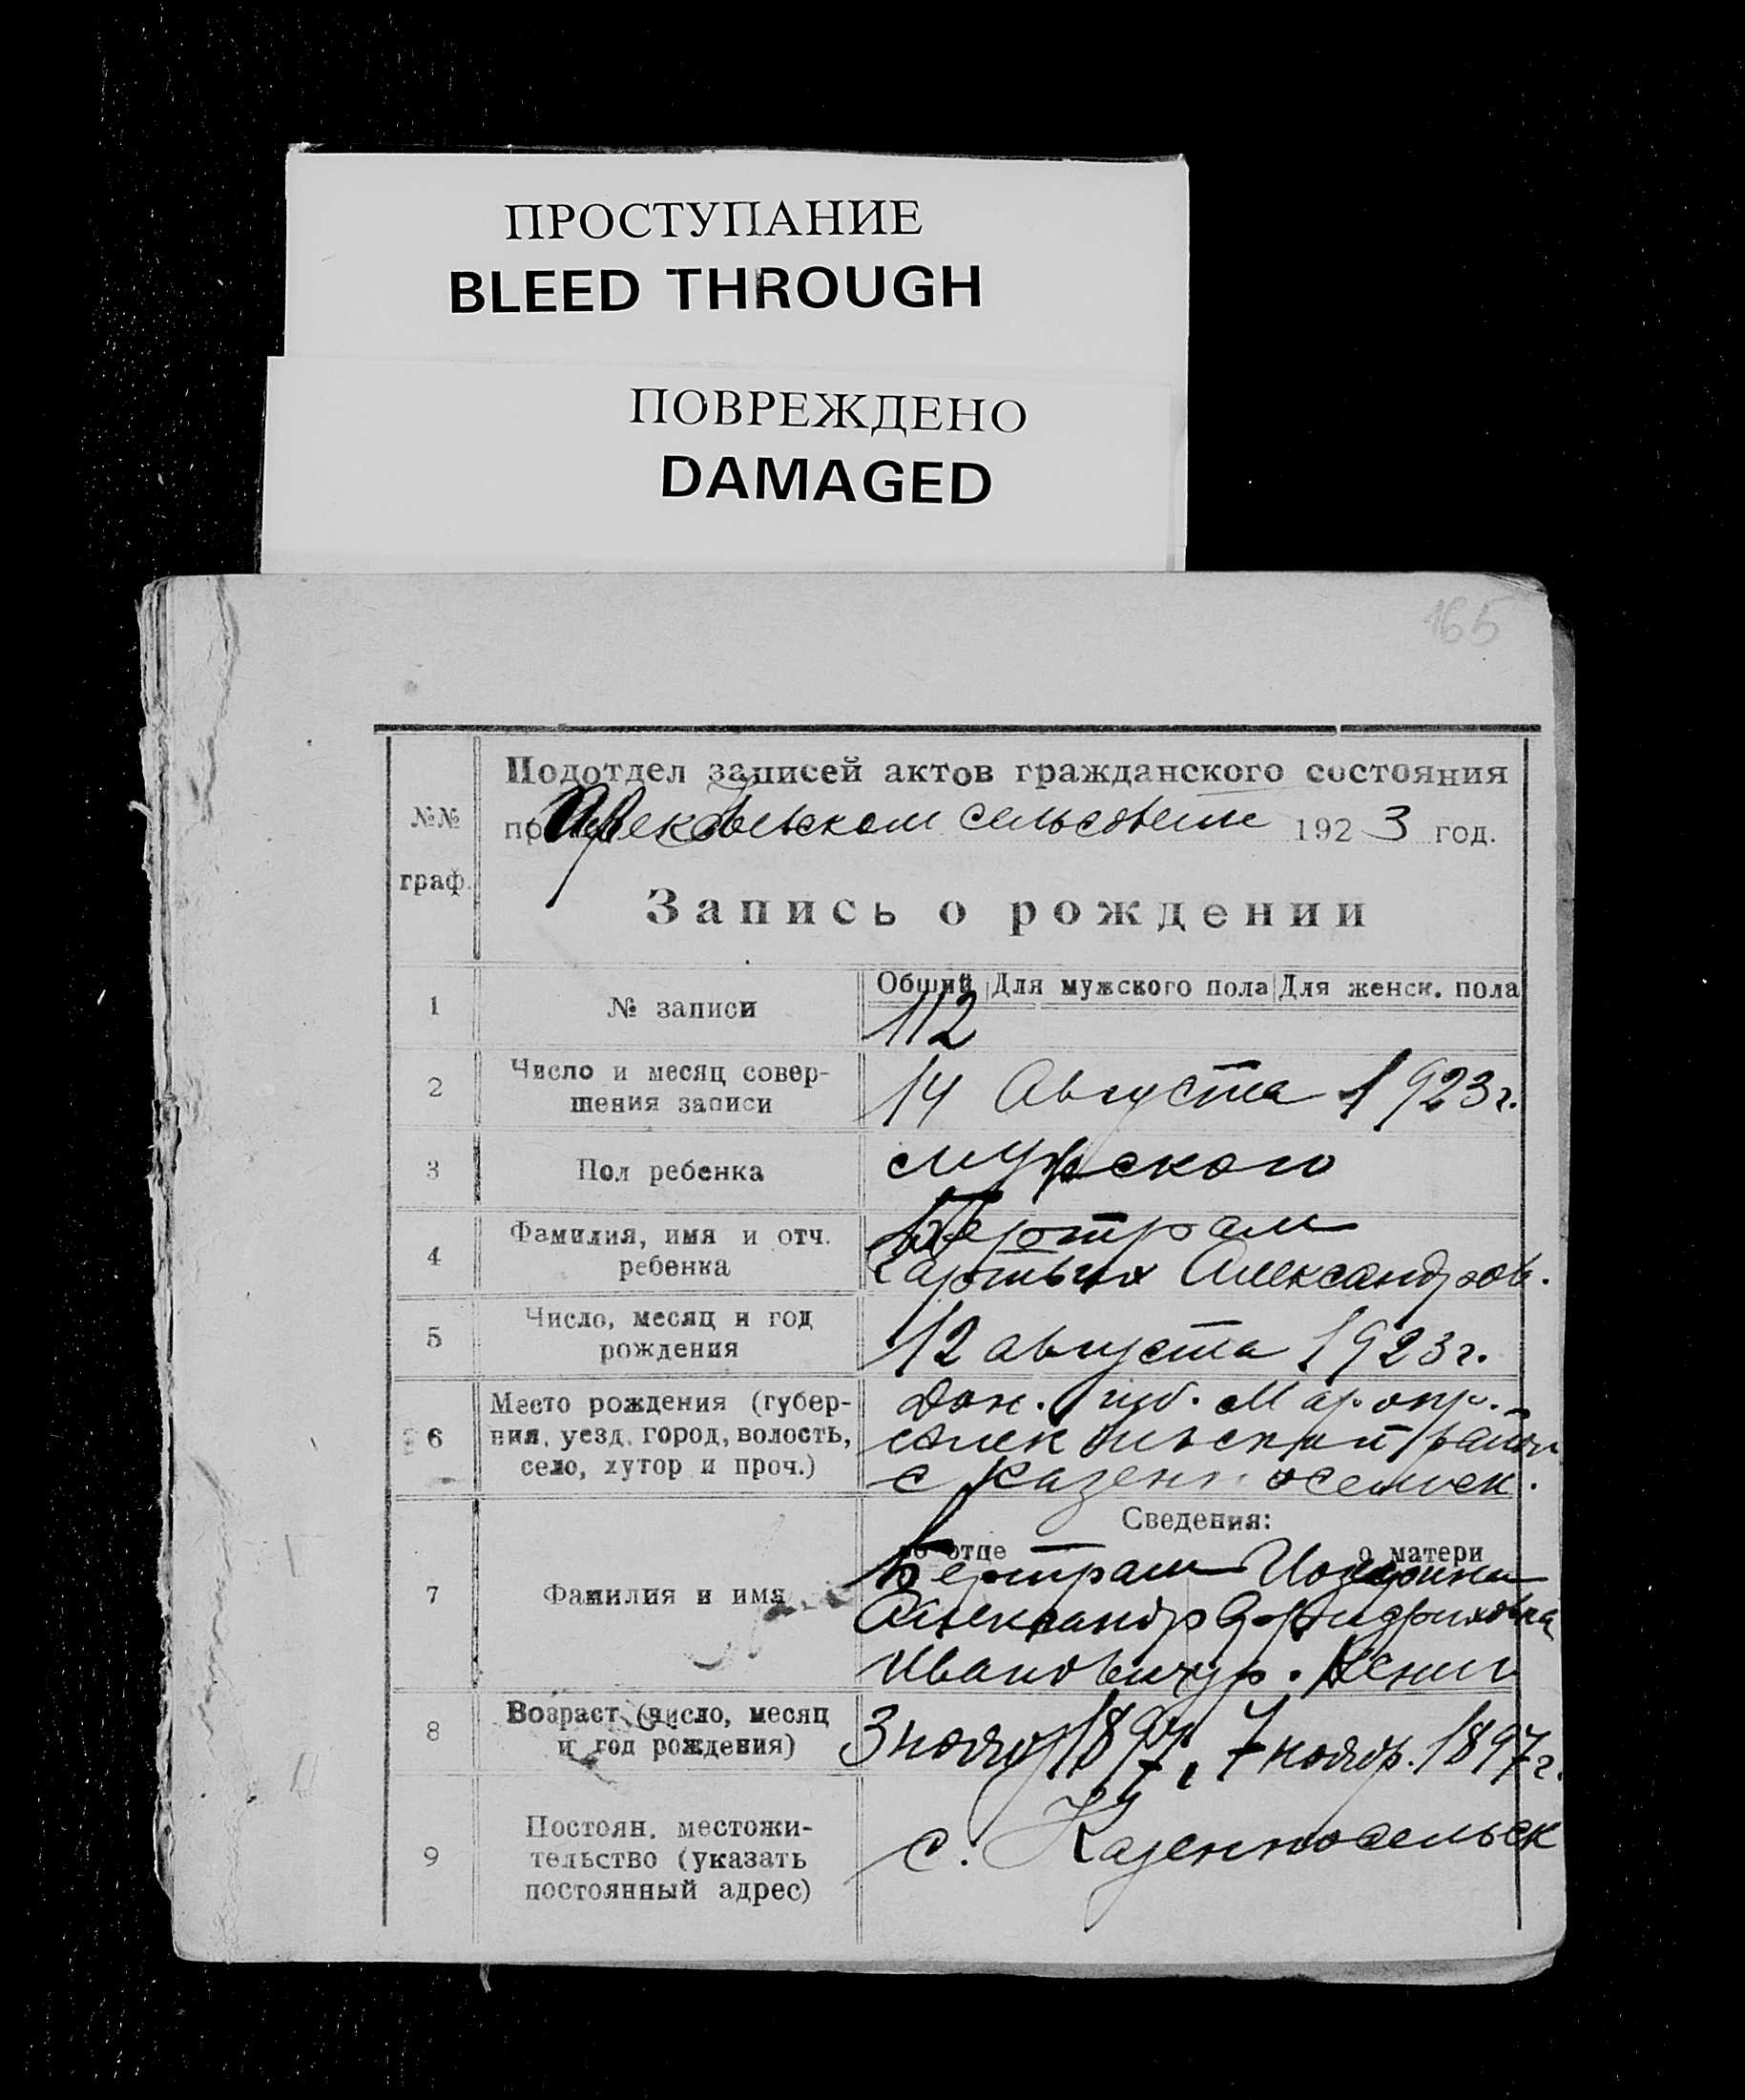 ПРОСТУПАНИЕ
BLEED THROUGH
ПОВРЕЖДЕНО
DAMAGED
165
Подотдел записей актов гражданского состояния
№№
при сельсовете 1923 год.
граф.
Запись о рождении
Общий Для мужского пола Для женск. пола
1 № записи 112
2 Число и месяц совер-
шения записи
14 Августа 1923г.
3 Пол ребенка мужского
4 Фамилия, имя и отч.
ребенка
Бертрам
Александров.
5 Число, месяц и год
рождения
12 августа 1923г.
6 Место рождения (губер-
ния, уезд, город, волость,
село, хутор и проч.)
Дон. Губ. Мар. окр.
район
с Казенносельск.
Сведения:
об отце о матери
7 Фамилия и имя
Бертрам
Александр Фридриховна
Иванович ур. Кениг
8 Возраст (число, месяц
и год рождения)
3 ноябр 1897г. 7 ноябр. 1897г.
9 Постоян. местожи-
тельство (указать
постоянный адрес)
с. Казенносельск